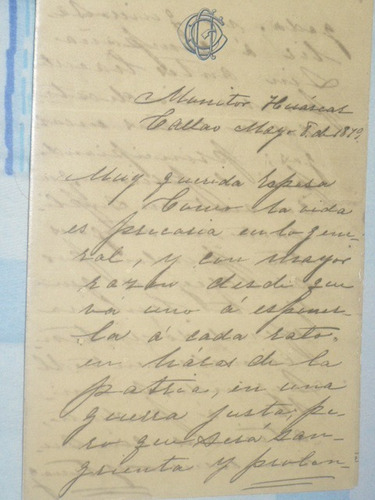 Monitor Huáscar
Callao Mayo 8 de 1879,
Muy querida Esposa
Como la vida
es precaria en lo gene-
ral, y con mayor
razon desde que
vá uno á esponer-
la á cada rato
en háras de la
patria, en una
guerra justa, pe-
ro que será san-
grienta y prolon-